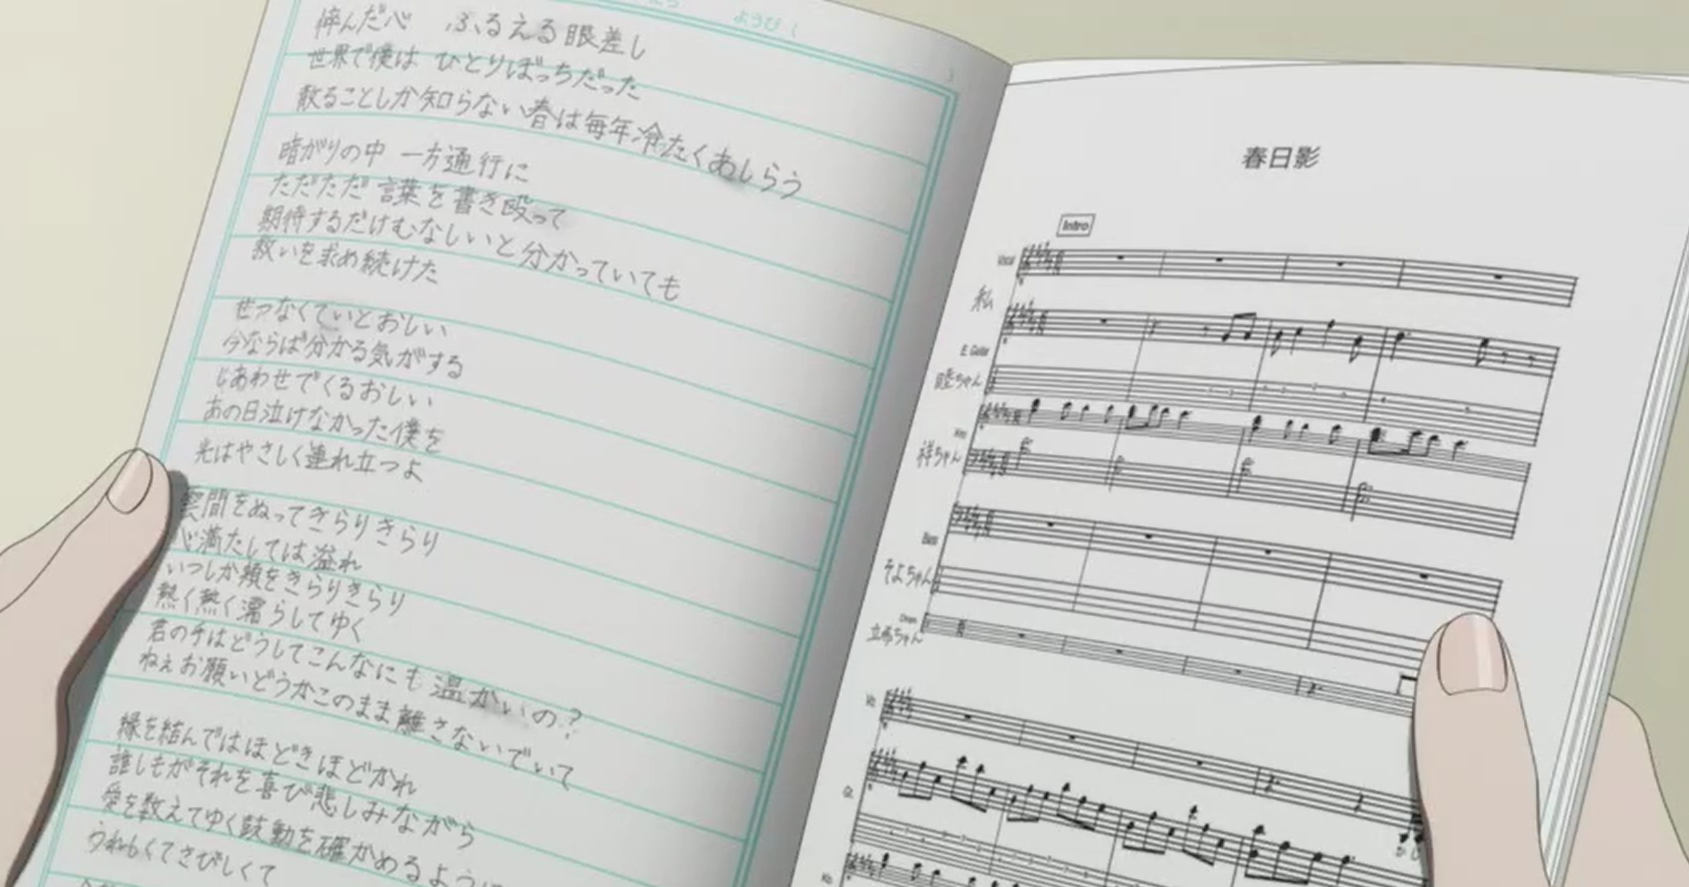 ようび
悴んだ心 ふるえる眼差し
世界で僕は ひとりぼっちだった
散ることしか知らない春は毎年冷たくあしらう
暗がりの中 一方通行に
ただただ 言葉を書き殴って
期待するだけむなしいと分かっていても
救いを求め続けた
せつなくていとおしい
今ならば分かる気がする
しあわせでくるおしい
あの日泣けなかった僕を
光はやさしく連れ立つよ
雲間をぬってきらりきらり
心満たしては溢れ
いつしか頬をきらりきらり
熱く熱く濡らしてゆく
君の手はどうしてこんなにも温かいの?
ねぇお願いどうかこのまま離さないでいて
縁を結んではほどきほどかれ
誰しもがそれを喜び悲しみながら
愛を数えてゆく鼓動を確かめるように
うれしくてさびしくて
春日影
Intro
Vocal
私
E. Guitar
睦ちゃん
祥ちゃん
Bass
そよちゃん
Drum
立希ちゃん
Vo.
Gt.